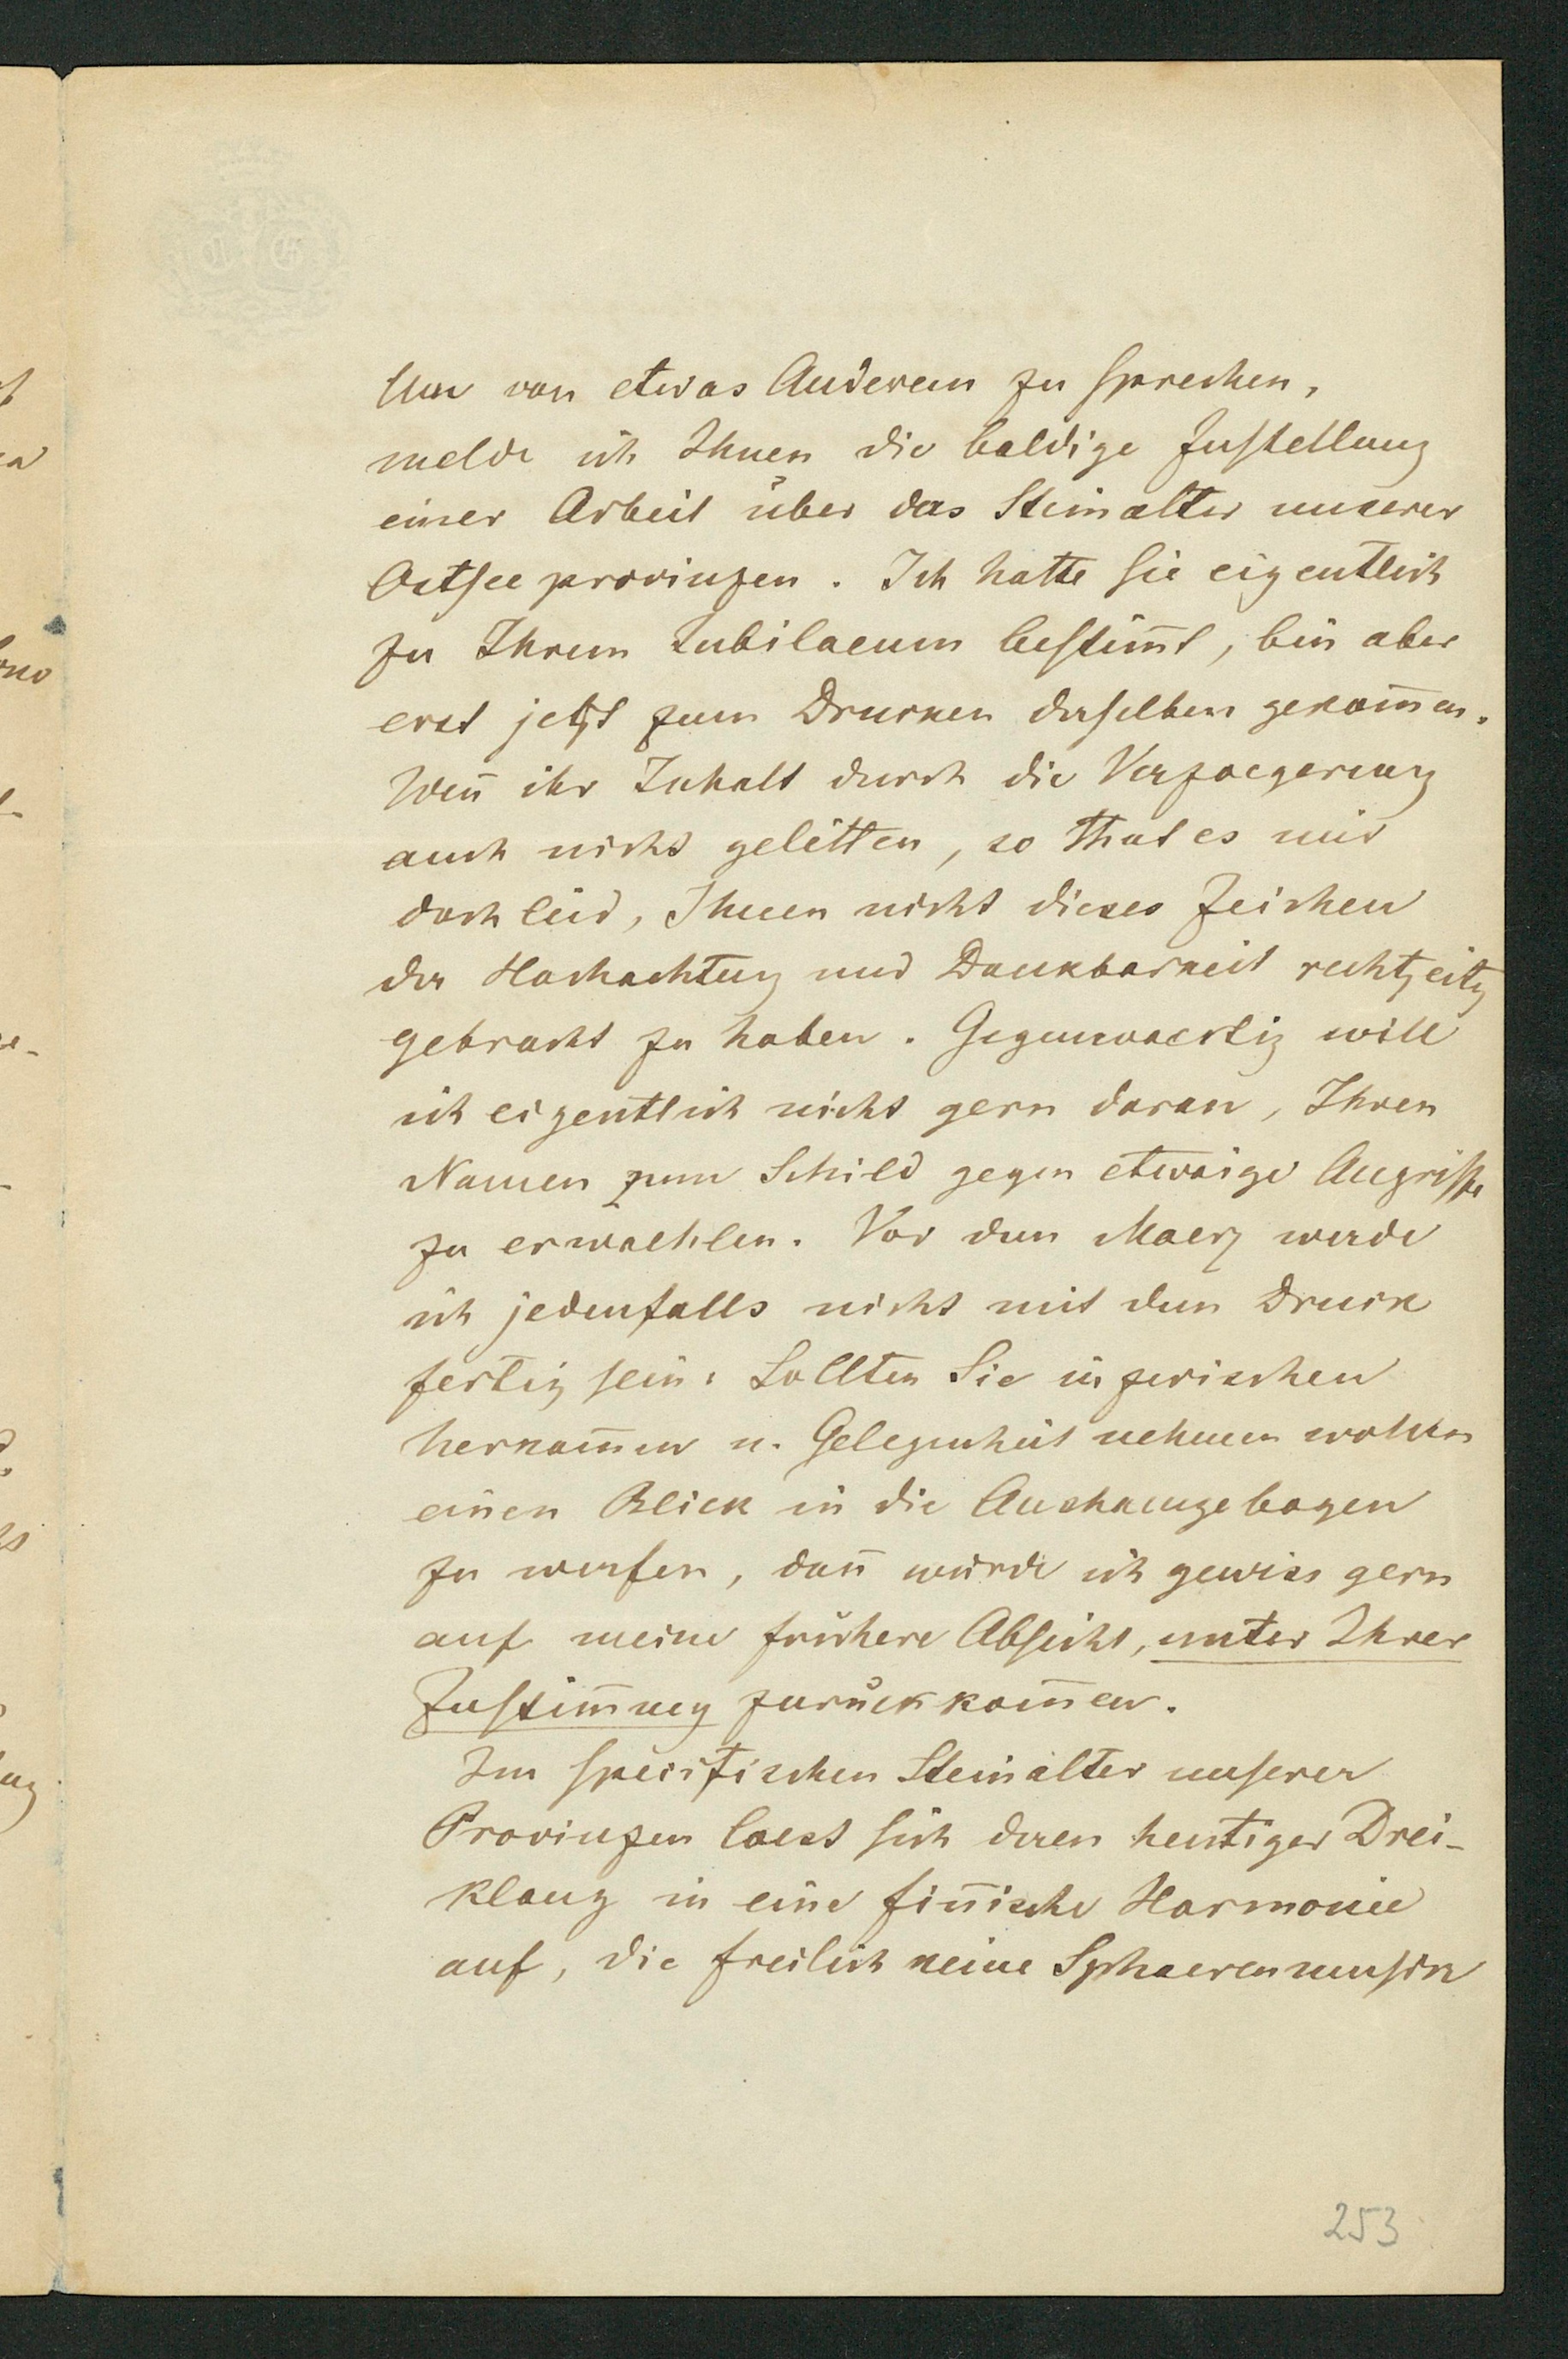 Um von etwas Anderem zu sprechen,
melde ich Ihnen die baldige Zustellung
einer Arbeit über das Steinalter unserer
Ostseeprovinzen. Ich hatte sie eigentlich
zu Ihrem Jubilaeum bestim̄t, bin aber
erst jetzt zum Drucken derselben gekom̄en.
Wen̄ ihr Inhalt durch die Verzoegerung
auch nicht gelitten, so that es mir
doch leid, Ihnen nicht dieses Zeichen
der Hochachtung und Dankbarkeit rechtzeitig
gebracht zu haben. Gegenwaertig will
ich eigentlich nicht gern daran, Ihren
Namen zum Schild gegen etwaige Angriffe
zu erwaehlen. Vor dem Maerz werde
ich jedenfalls nicht mit dem Druck
fertig sein. Sollten Sie inzwischen
herkom̄en u. Gelegenheit nehmen wollen
einen Blick in die Aushaengebogen
zu werfen, dan̄ würde ich gewiss gern
auf meine frühere Absicht, unter Ihrer
Zustim̄ung zurückkom̄en.
Im specifischen Steinalter unserer
Provinzen laest sich deren heutiger Drei-
klang in eine fin̄ische Harmonie
auf, die freilich keine Sphaerenmusik
253